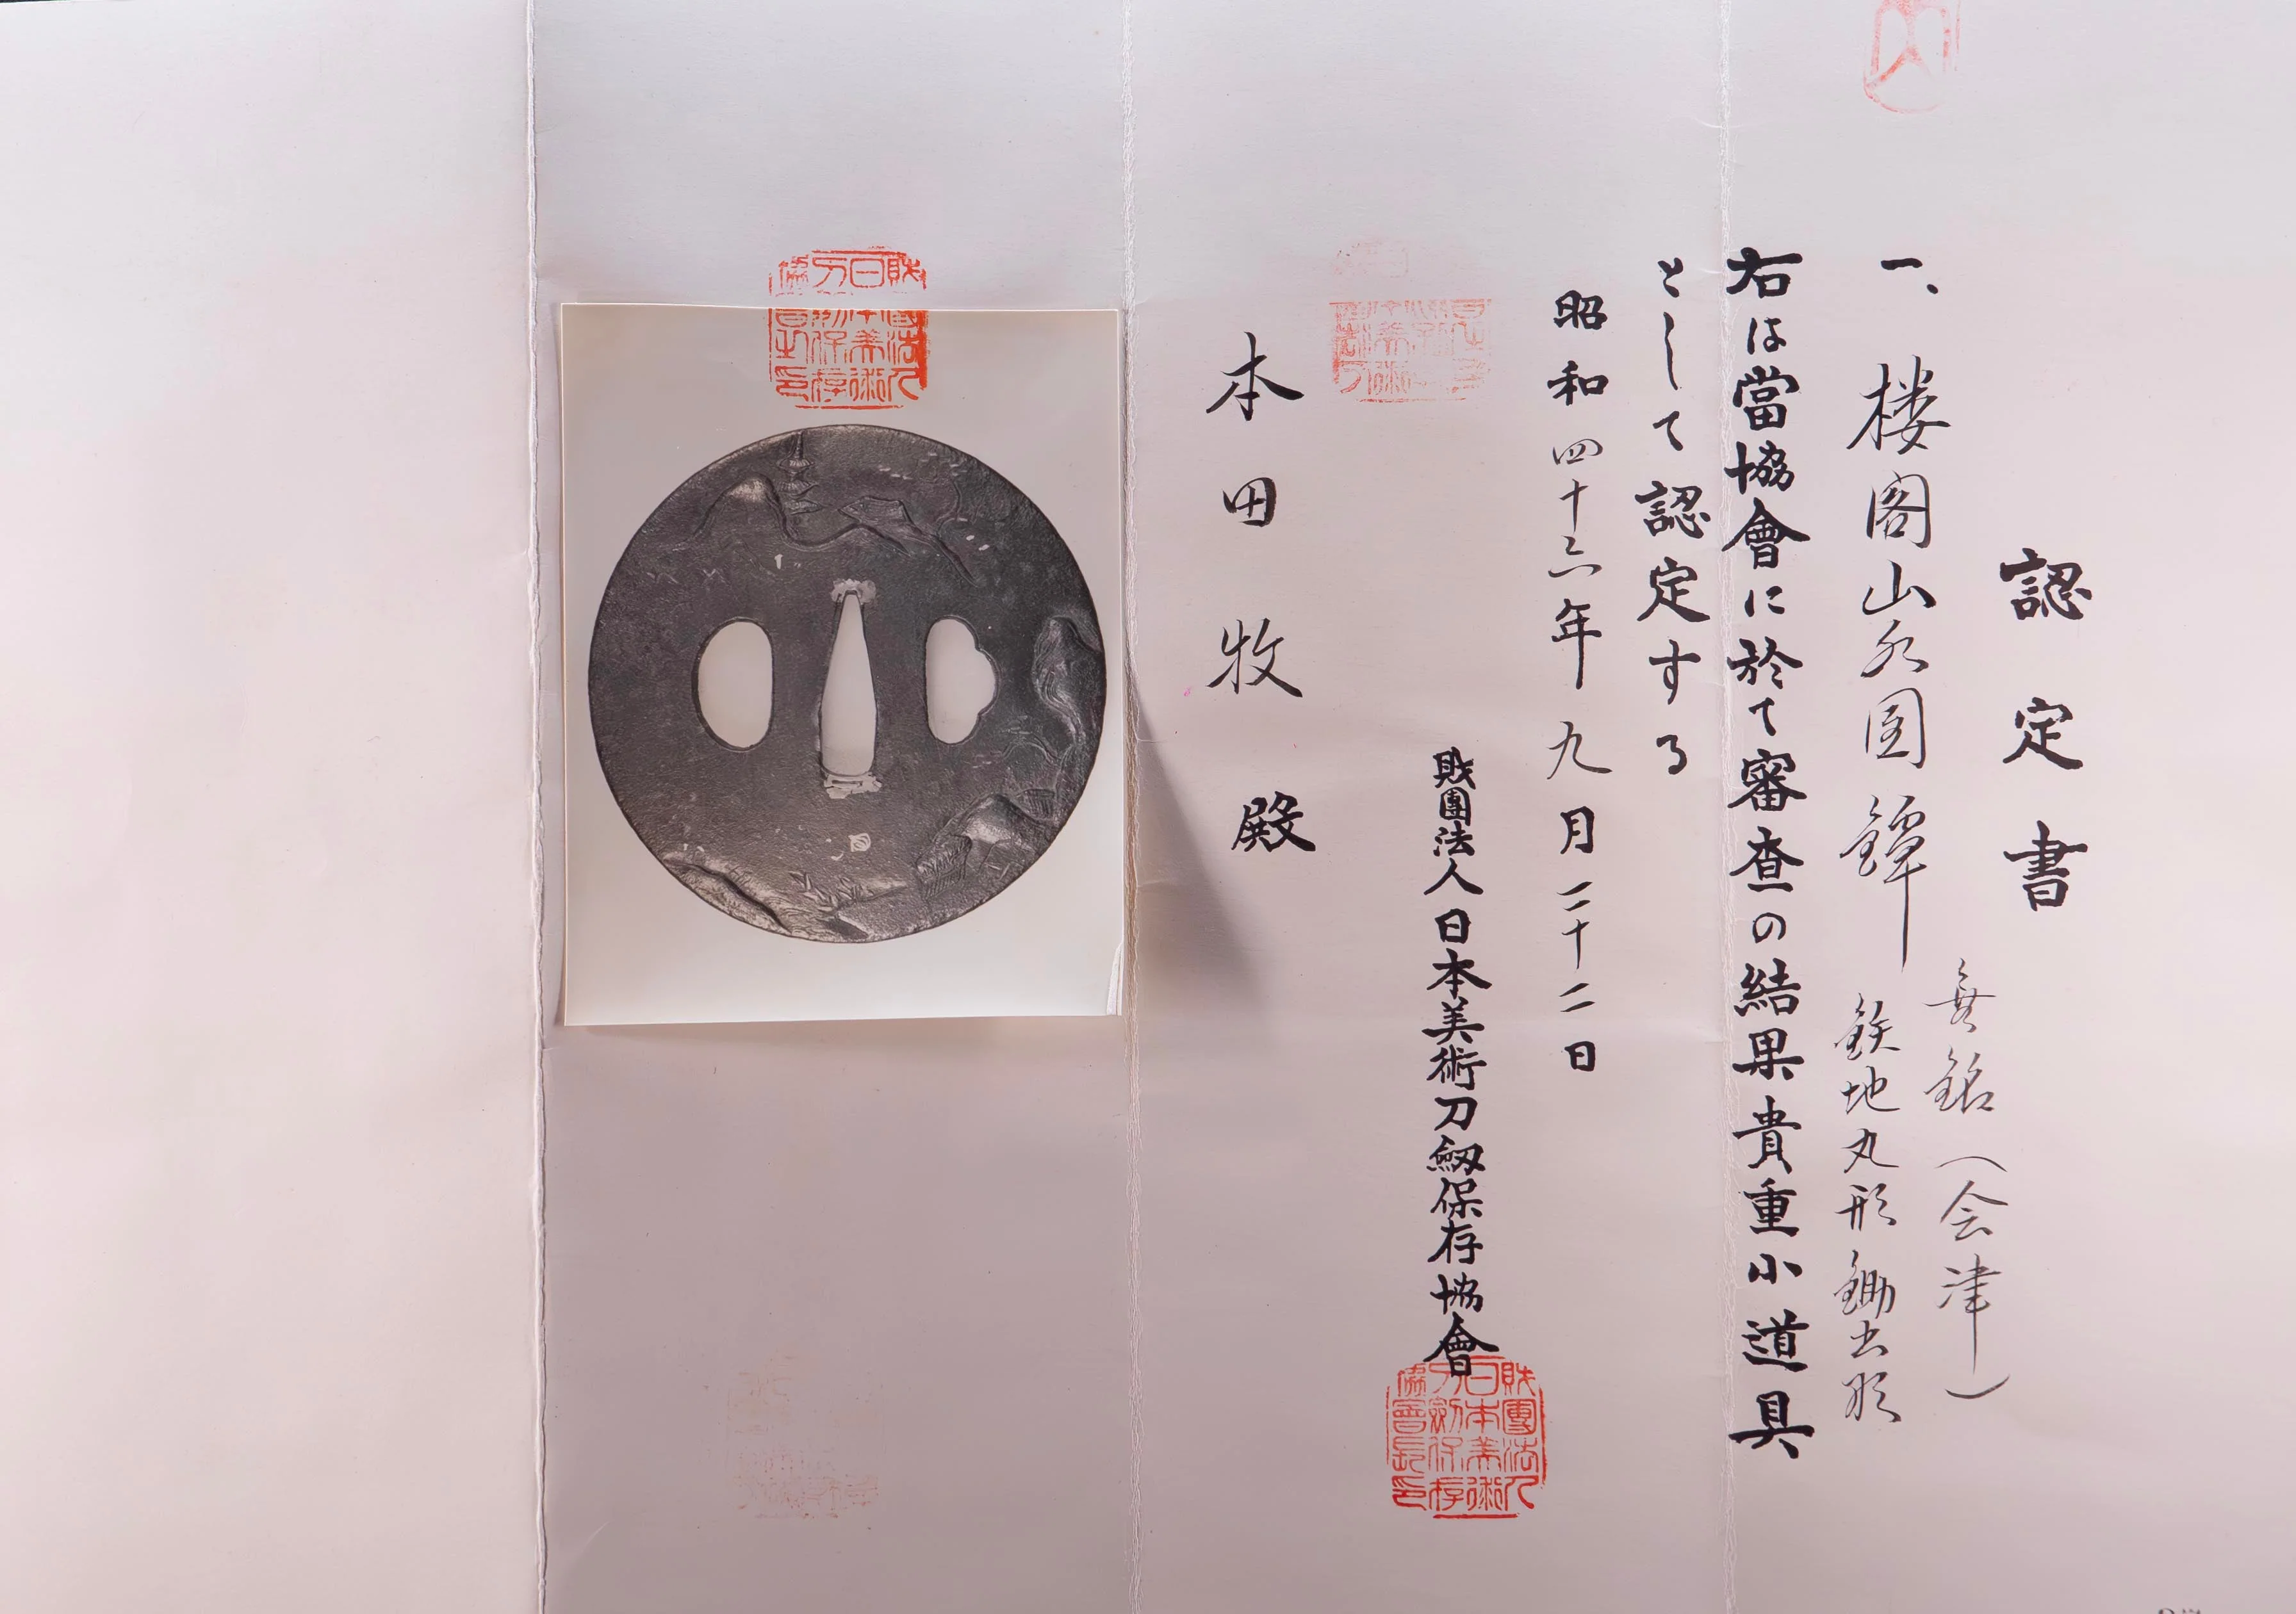 認定書
一、楼閣山水図鐔
無銘(会津)
鉄地丸形鋤出彫
右は當協會に於て審査の結果貴重小道具
として認定する
昭和四十六年九月二十二日
財團法人日本美術刀劔保存協會
財團法人日本美術刀劔保存協會長印
本田牧殿
財團法人日本美術刀劔保存協會之印